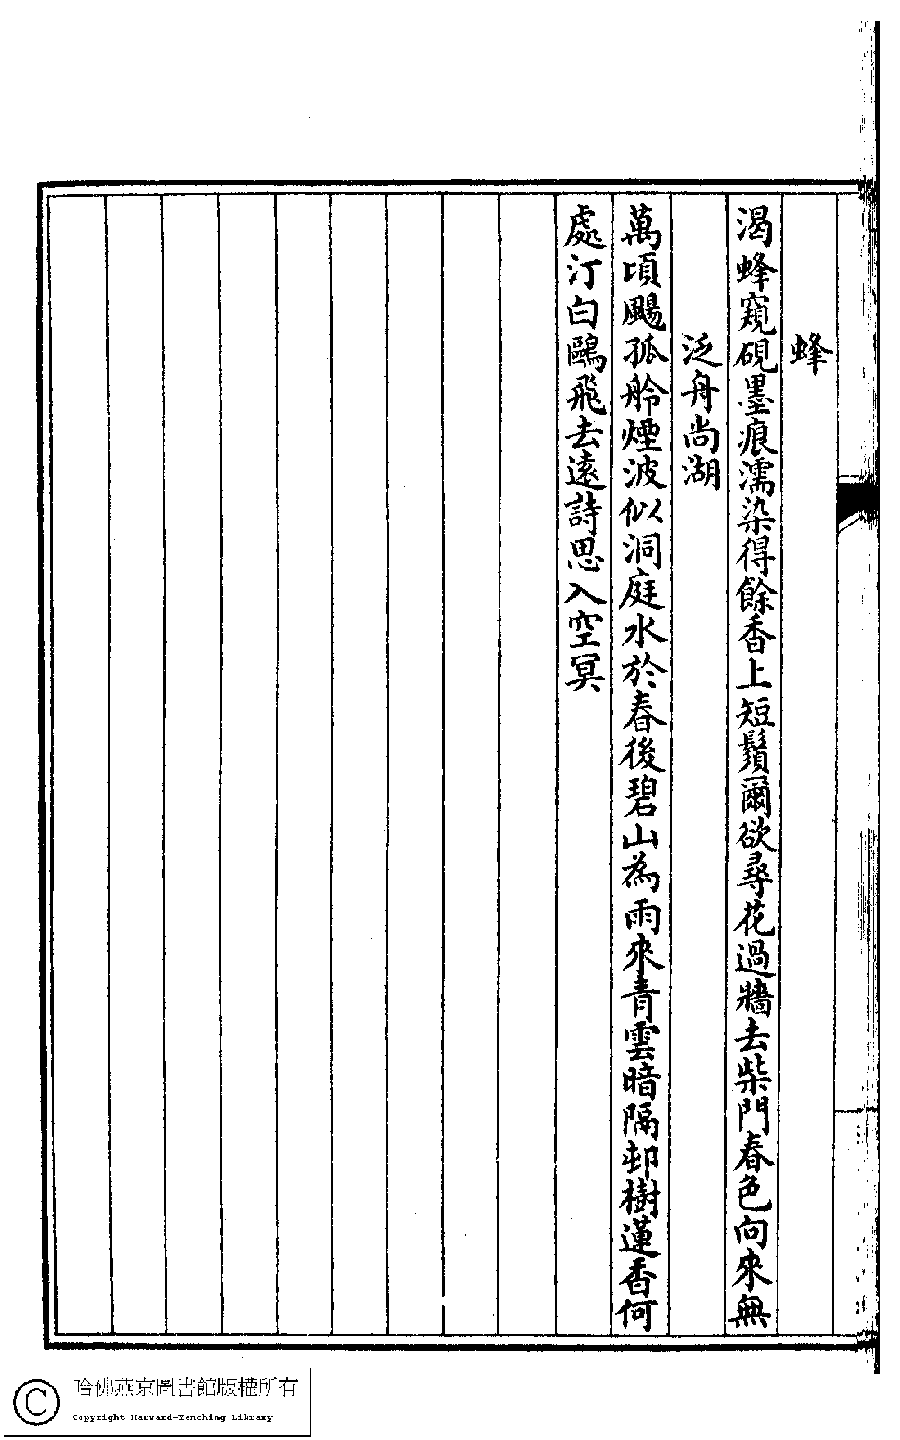 蜂
渴蜂窺硯墨痕濡染得餘香上短鬚爾欲尋花過牆去柴門春色向來無
泛舟尚湖
萬頃颺孤舲煙波似洞庭水於春後碧山為雨來青雲暗隔邨樹蓮香何
處汀白鷗飛去遠詩思入空冥
哈佛燕京圖書館版權所有
Copyright Harvard-Yenching Library